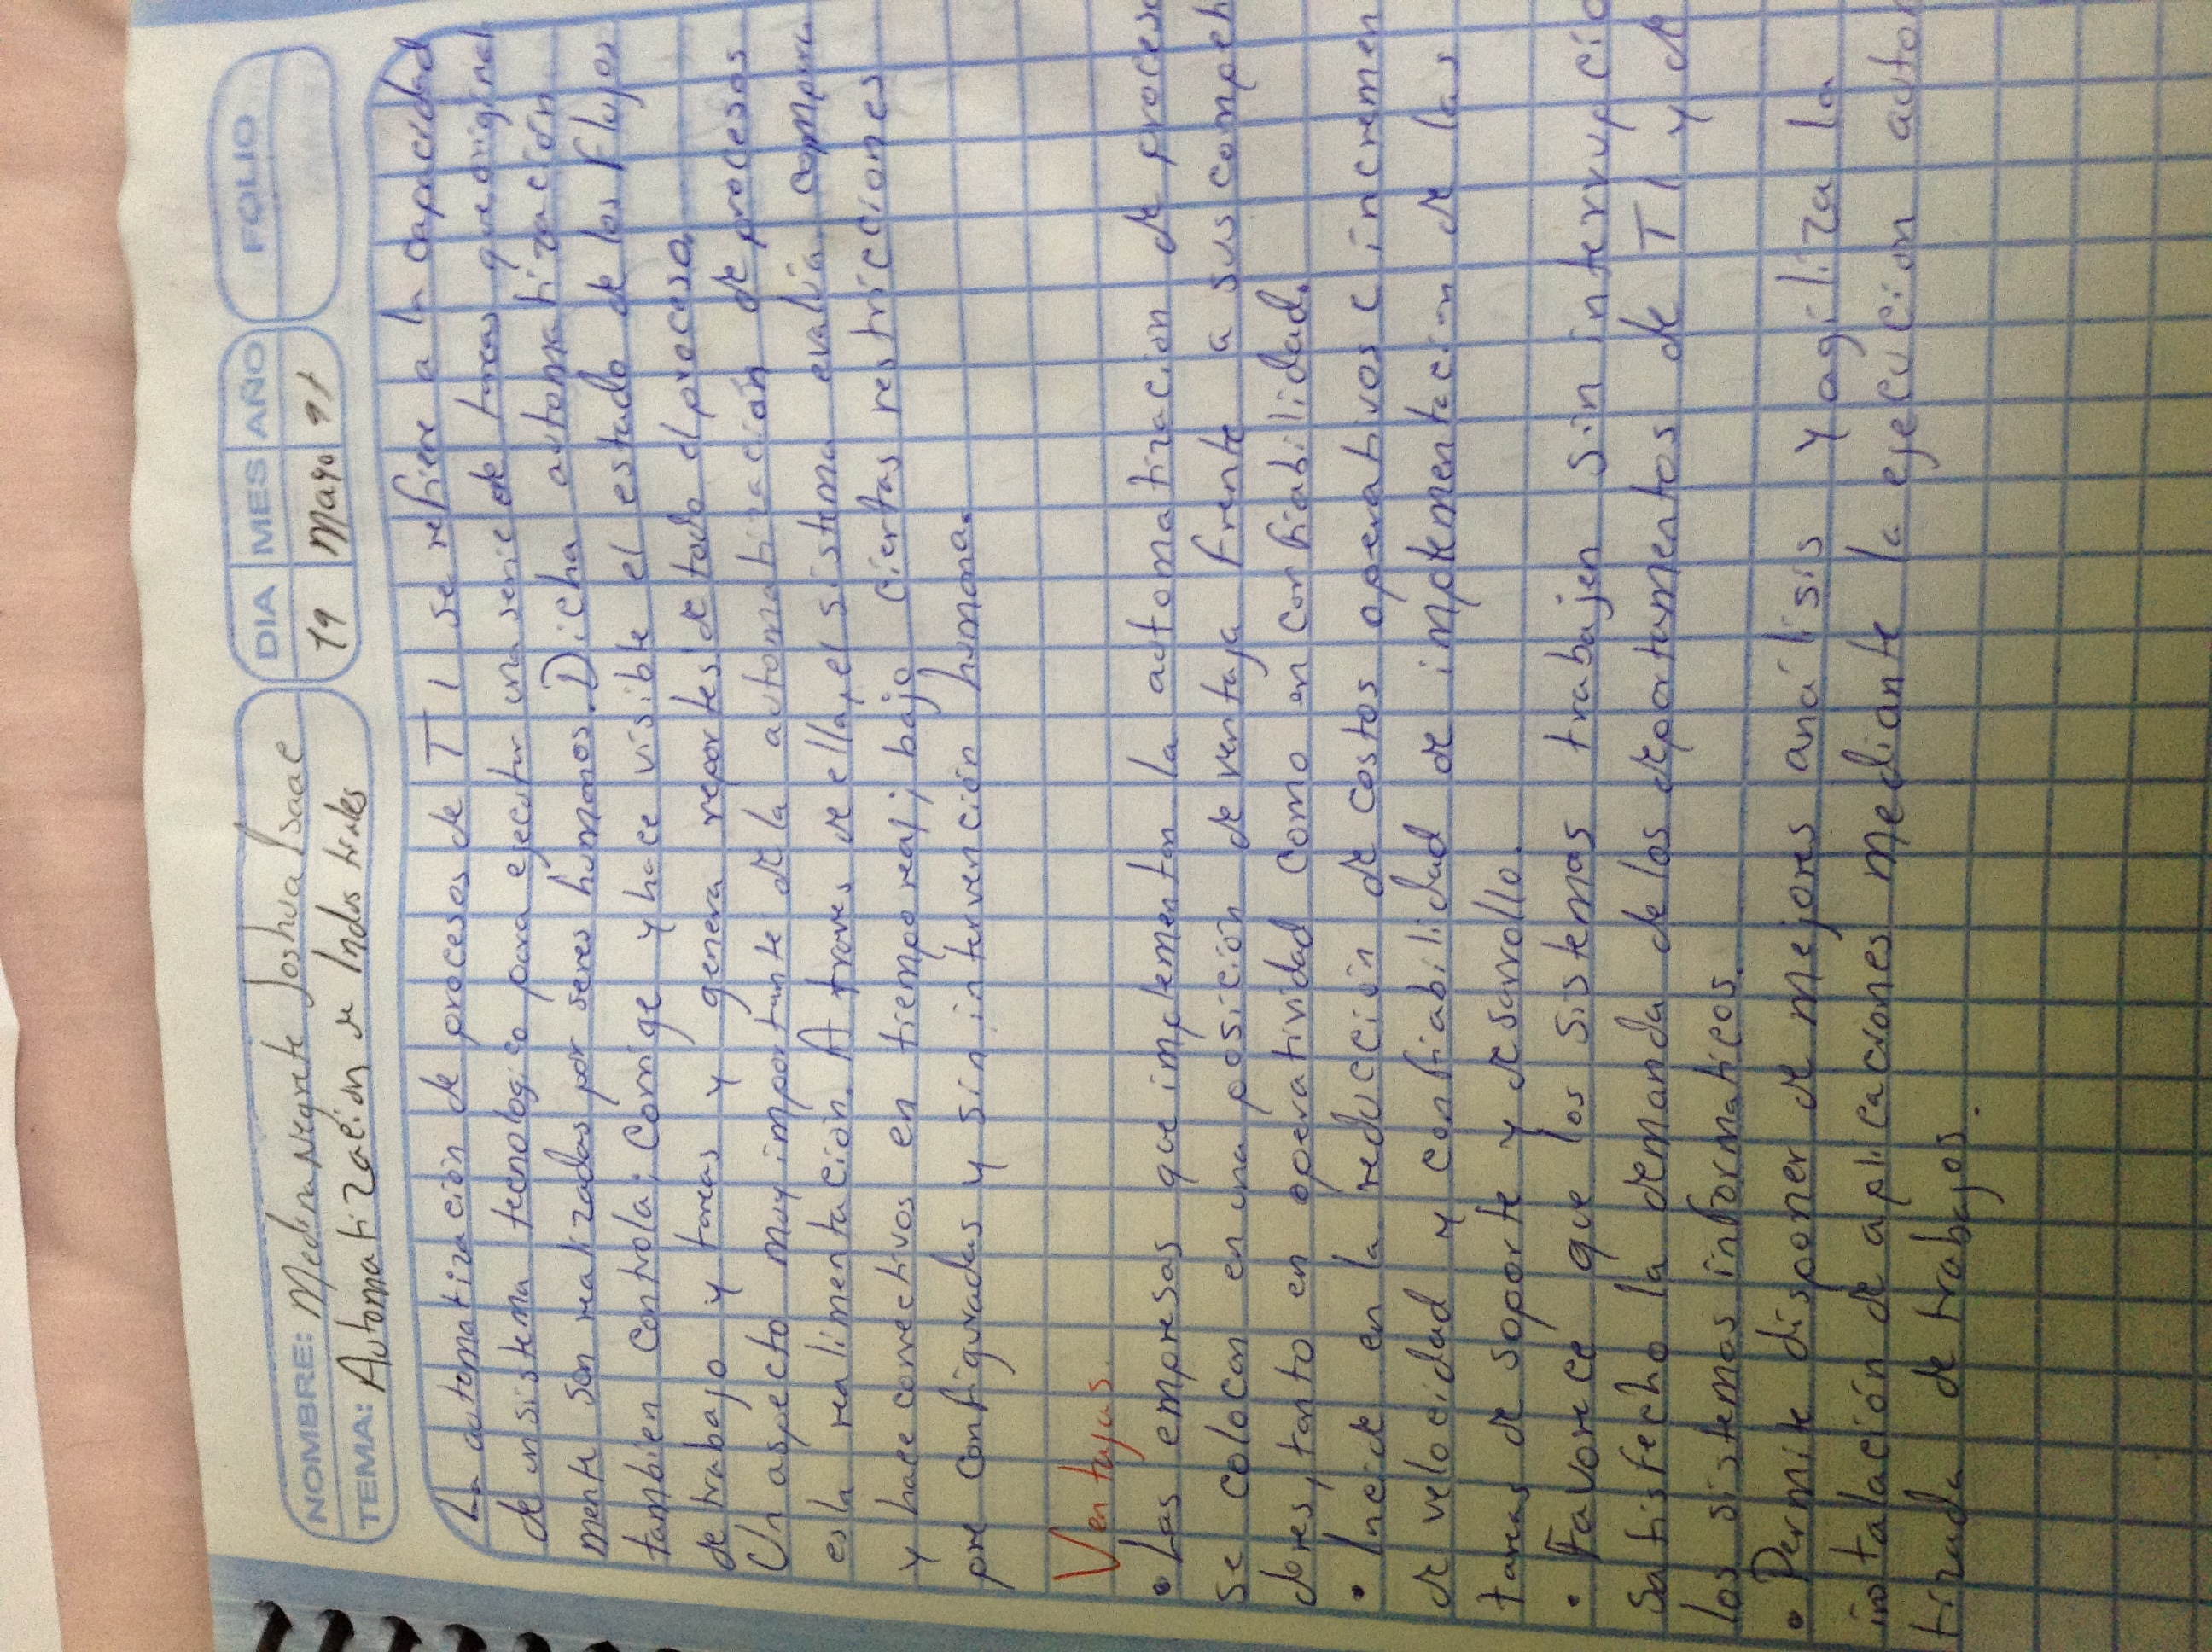 DIA MES AÑO FOLIO
NOMBRE: Medina Negrete Joshua Isaac
19 Mayo 21
TEMA: Automatización de Industriales
La automatización de procesos de TI se refiere a la capacidad
de un sistema tecnologico para ejecutar una serie de tareas que original
mente son realizadas por seres humanos. Dicha automatización
tambien controla; corrige y hace visible el estado de los flujos
de trabajo y tareas y genera reportes de todo el proceso.
Un aspecto muy importante de la automatización de procesos
es la realimentación. A traves de ella, el sistema evalúa, compara
y hace correctivos en tiempo real; bajo ciertas restricciones
pre configuradas y sin intervención humana.
Ventajas.
• Las empresas que implementan la automatización de proceso
se colocan en una posición de ventaja frente a sus competi
dores, tanto en operatividad como en confiabilidad.
• Incide en la reducción de costos operativos e incremen
de velocidad y confiabilidad de implementacion de las
tareas de soporte y desarrollo.
• Favorece que los sistemas trabajen sin interrupcio
satisfecho la demanda de los departamentos de TI y de
los sistemas informaticos.
• Permite disponer de mejores análisis y agiliza la
instalación de aplicaciones mediante la ejecucion autom
tizada de trabajos.